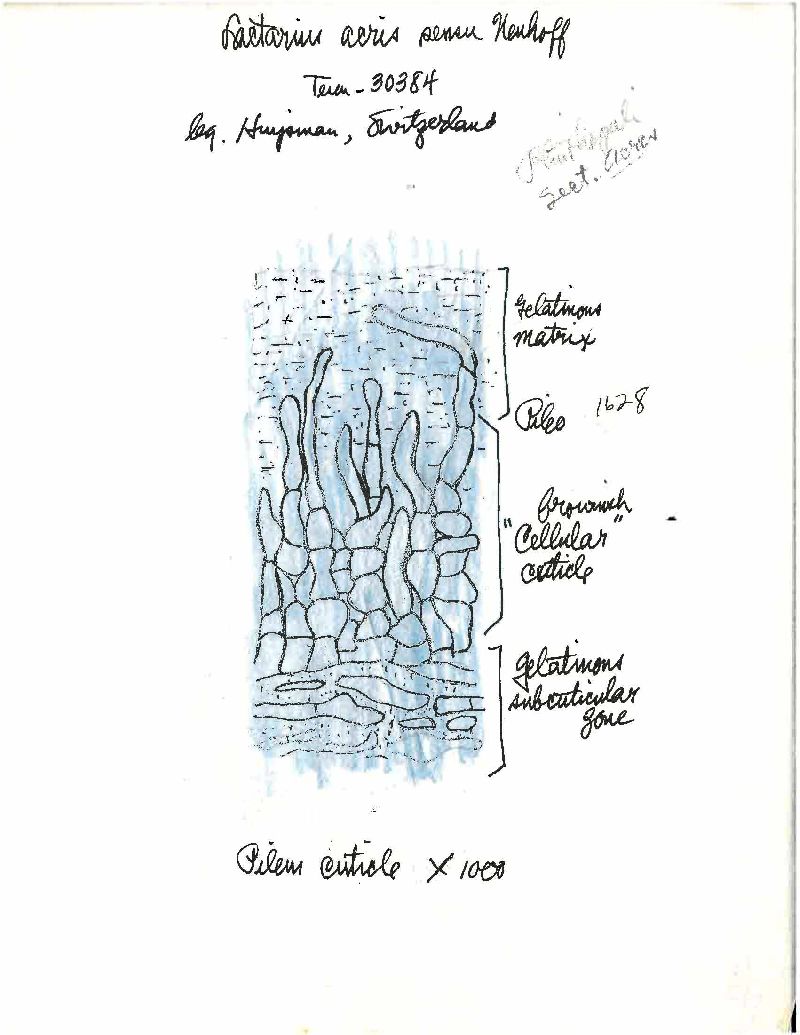 Lactarius acris sensu Neuhoff
Tenn - 30384
leg. Huijsman, Switzerland
Plinthogali
Sect. Acres
Gelatinous
matrix
Pileo 1628
brownish
"Cellular"
cuticle
gelatinous
subcuticular
zone
Pileus cuticle × 1000